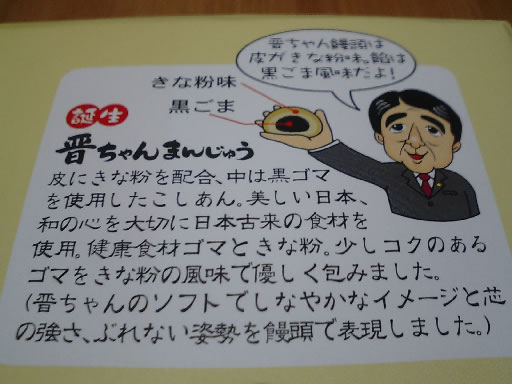 晋ちゃん饅頭は
皮がきな粉味。餡は
黒ごま風味だよ!
きな粉味
黒ごま
誕生
晋ちゃんまんじゅう
皮にきな粉を配合、中は黒ゴマ
を使用したこしあん。美しい日本、
和の心を大切に日本古来の食材を
使用。健康食材ゴマときな粉。少しコクのある
ゴマをきな粉の風味で優しく包みました。
(晋ちゃんのソフトでしなやかなイメージと芯
の強さ、ぶれない姿勢を饅頭で表現しました。)